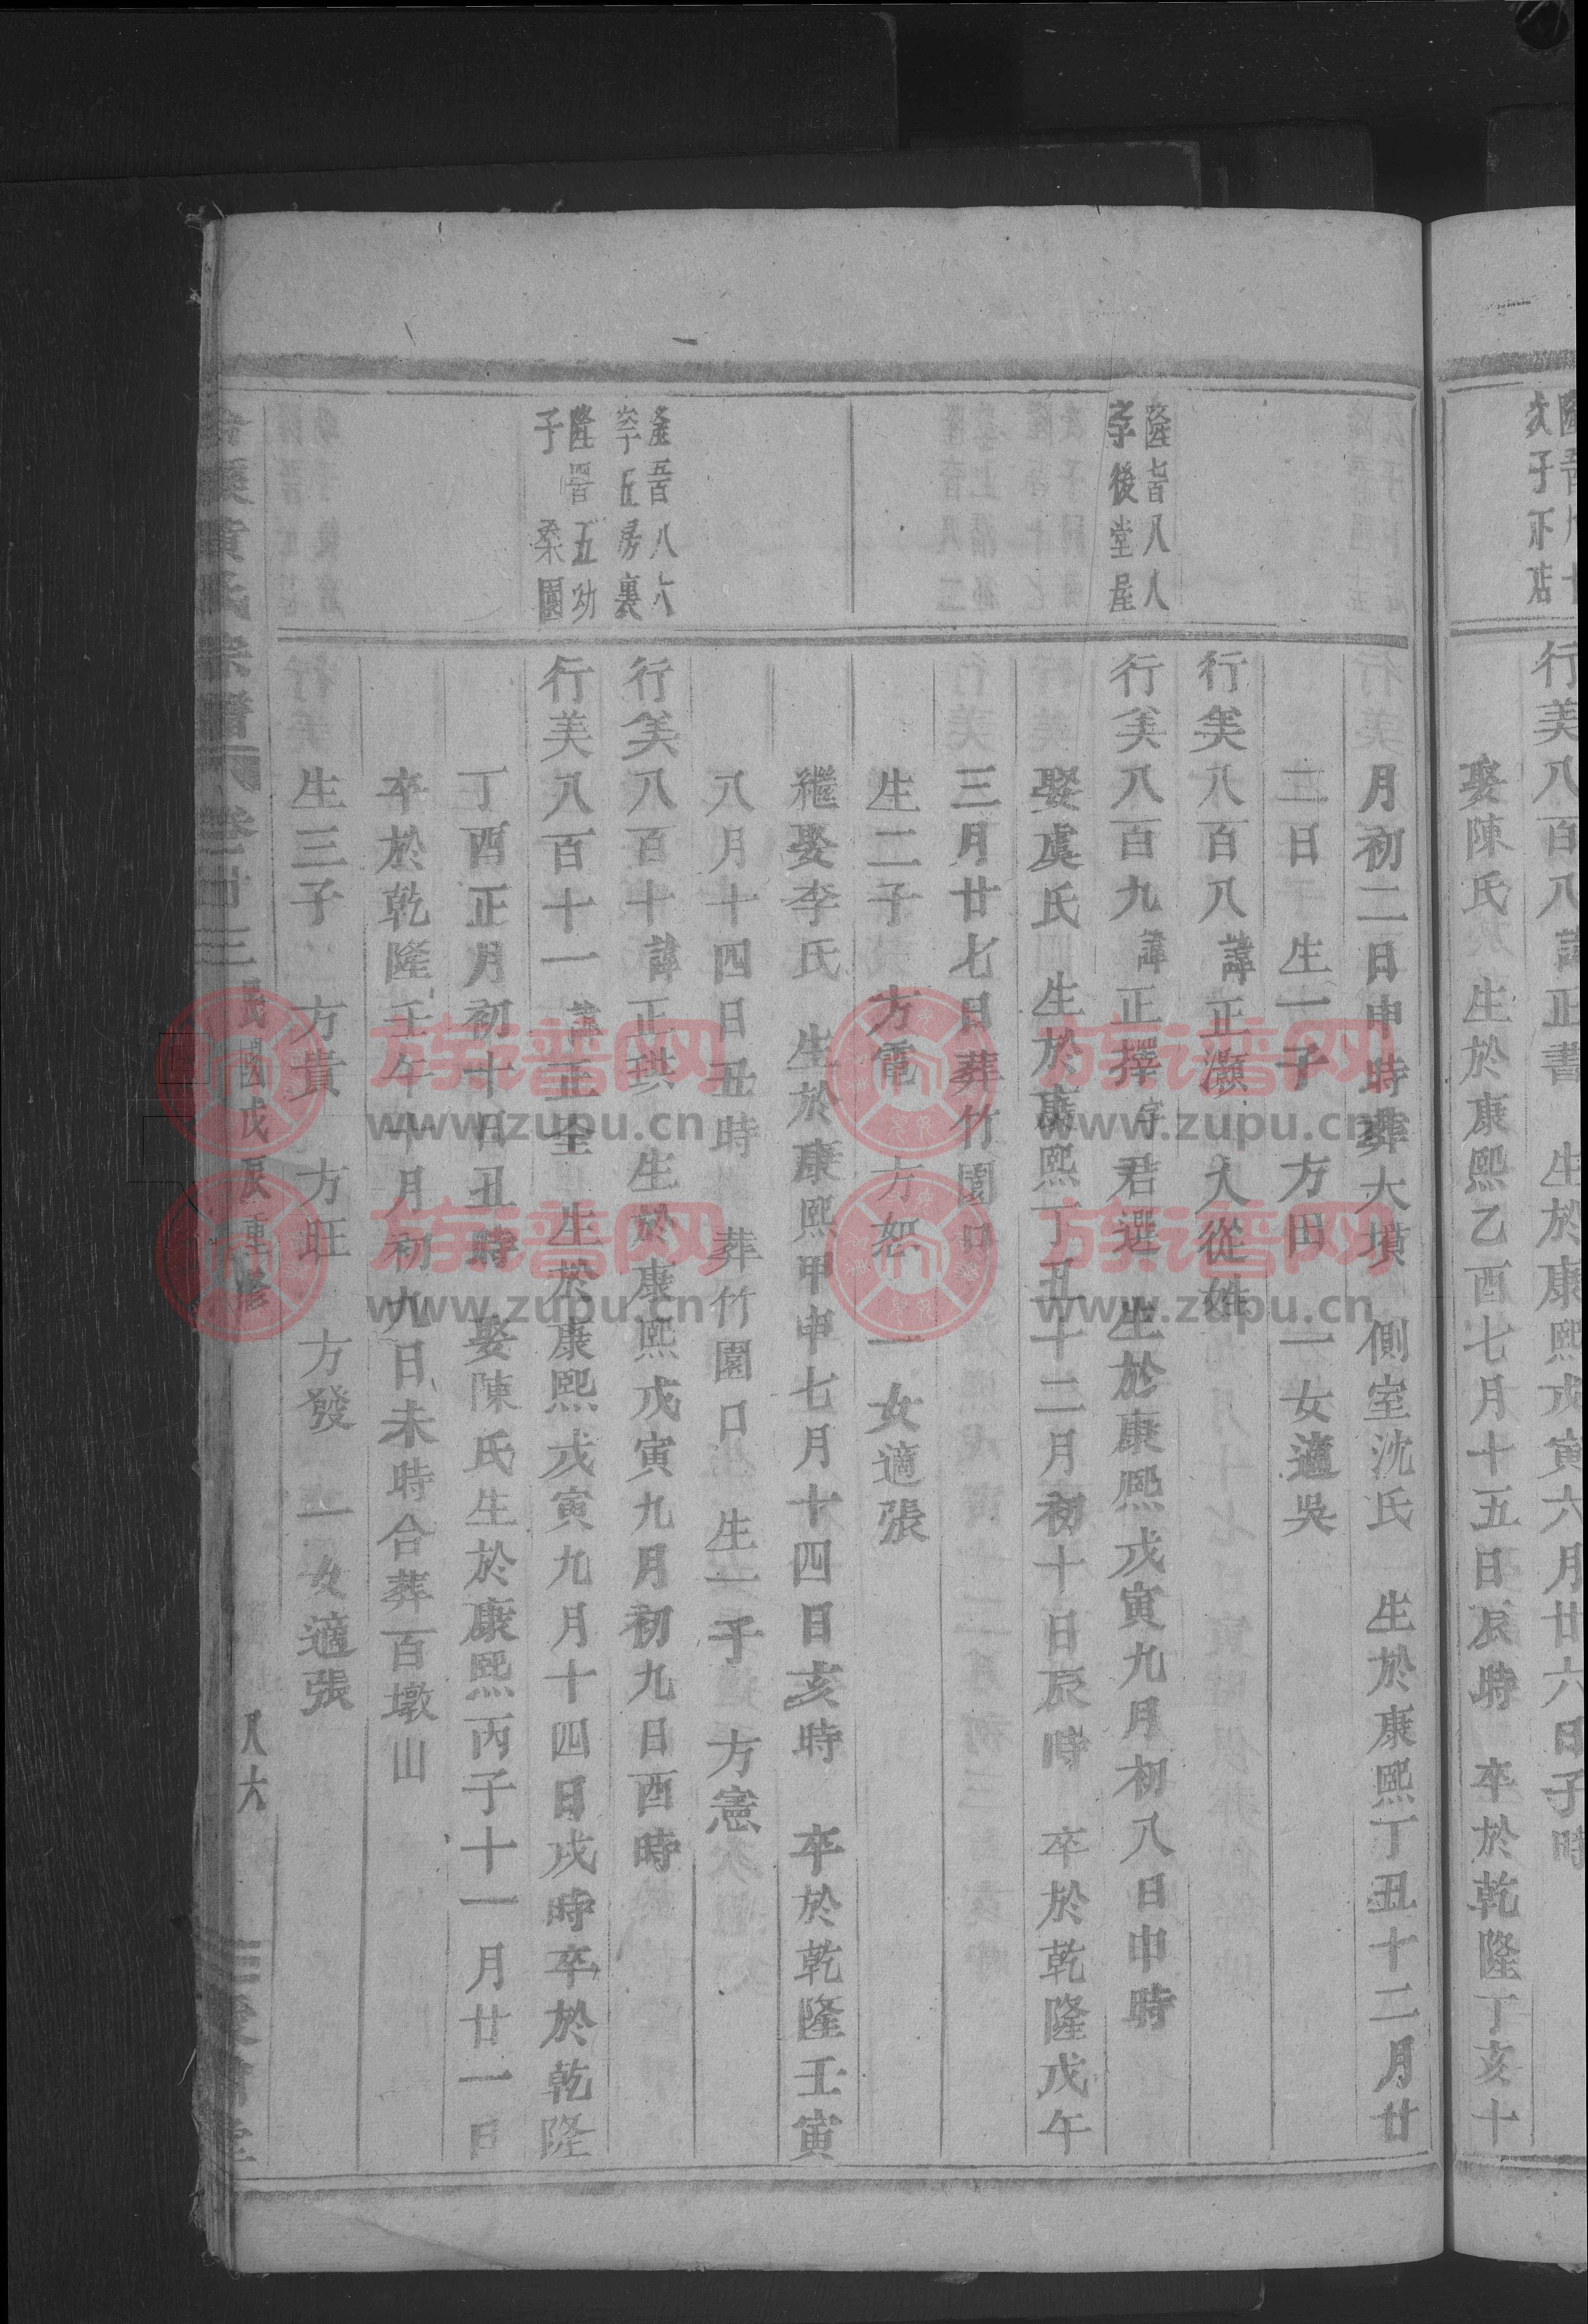 行美八百八諱正書　生於康熙戊寅六月廿六日子時
娶陳氏　生於康熙乙酉七月十五日辰時　卒於乾隆丁亥十
次子下店
月初二日申時葬大墳　側室沈氏　生於康熙丁丑十二月廿
二日　生一子　方田　一女適吳
行美八百八諱正灝　入從姓
隆七百八八
李後堂屋
行美八百九諱正擇字君選　生於康熙戊寅九月初八日申時
娶虞氏　生於康熙丁丑十二月初十日辰時　卒於乾隆戊午
三月廿七日葬竹園口
生二子　方電　方恕　一女適張
繼娶李氏　生於康熙甲申七月十四日亥時　卒於乾隆壬寅
八月十四日丑時　葬竹園口　生一子　方憲
隆五百八六
丘房裏
行美八百十諱正珙　生於康熙戊寅九月初九日酉時
隆四百五幼
子　桑園
行美八百十一諱正全　生於康熙戊寅九月十四日戌時卒於乾隆
丁酉正月初十日丑時　娶陳氏生於康熙丙子十一月廿一日
卒於乾隆壬午十月初九日未時合葬百墩山
生三子　方貴　方旺　方發　一女適張
黃氏宗譜　卷廿三　民國戊辰重修　八六
族谱网
www.zupu.cn
族谱网
www.zupu.cn
族谱网
www.zupu.cn
族谱网
www.zupu.cn